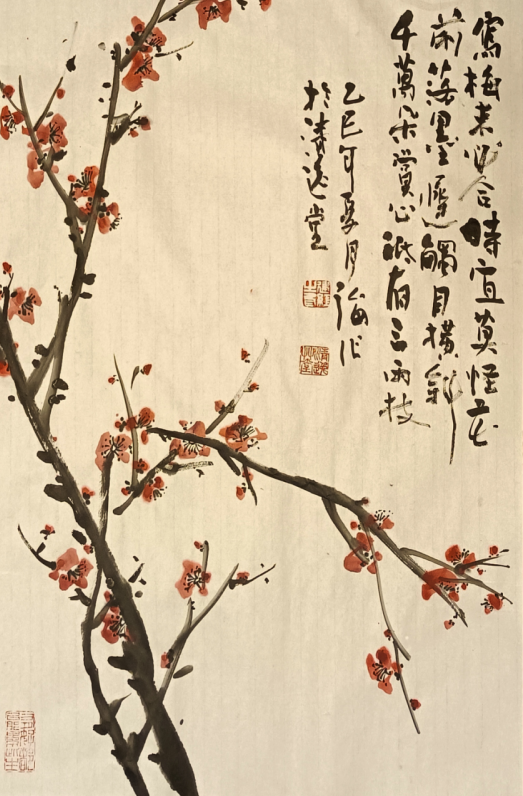 寫梅未必合時宜莫怪花
前落墨遲觸目橫斜
千萬朵賞心祇有三兩枝
乙巳年夏月 作
於清逸堂